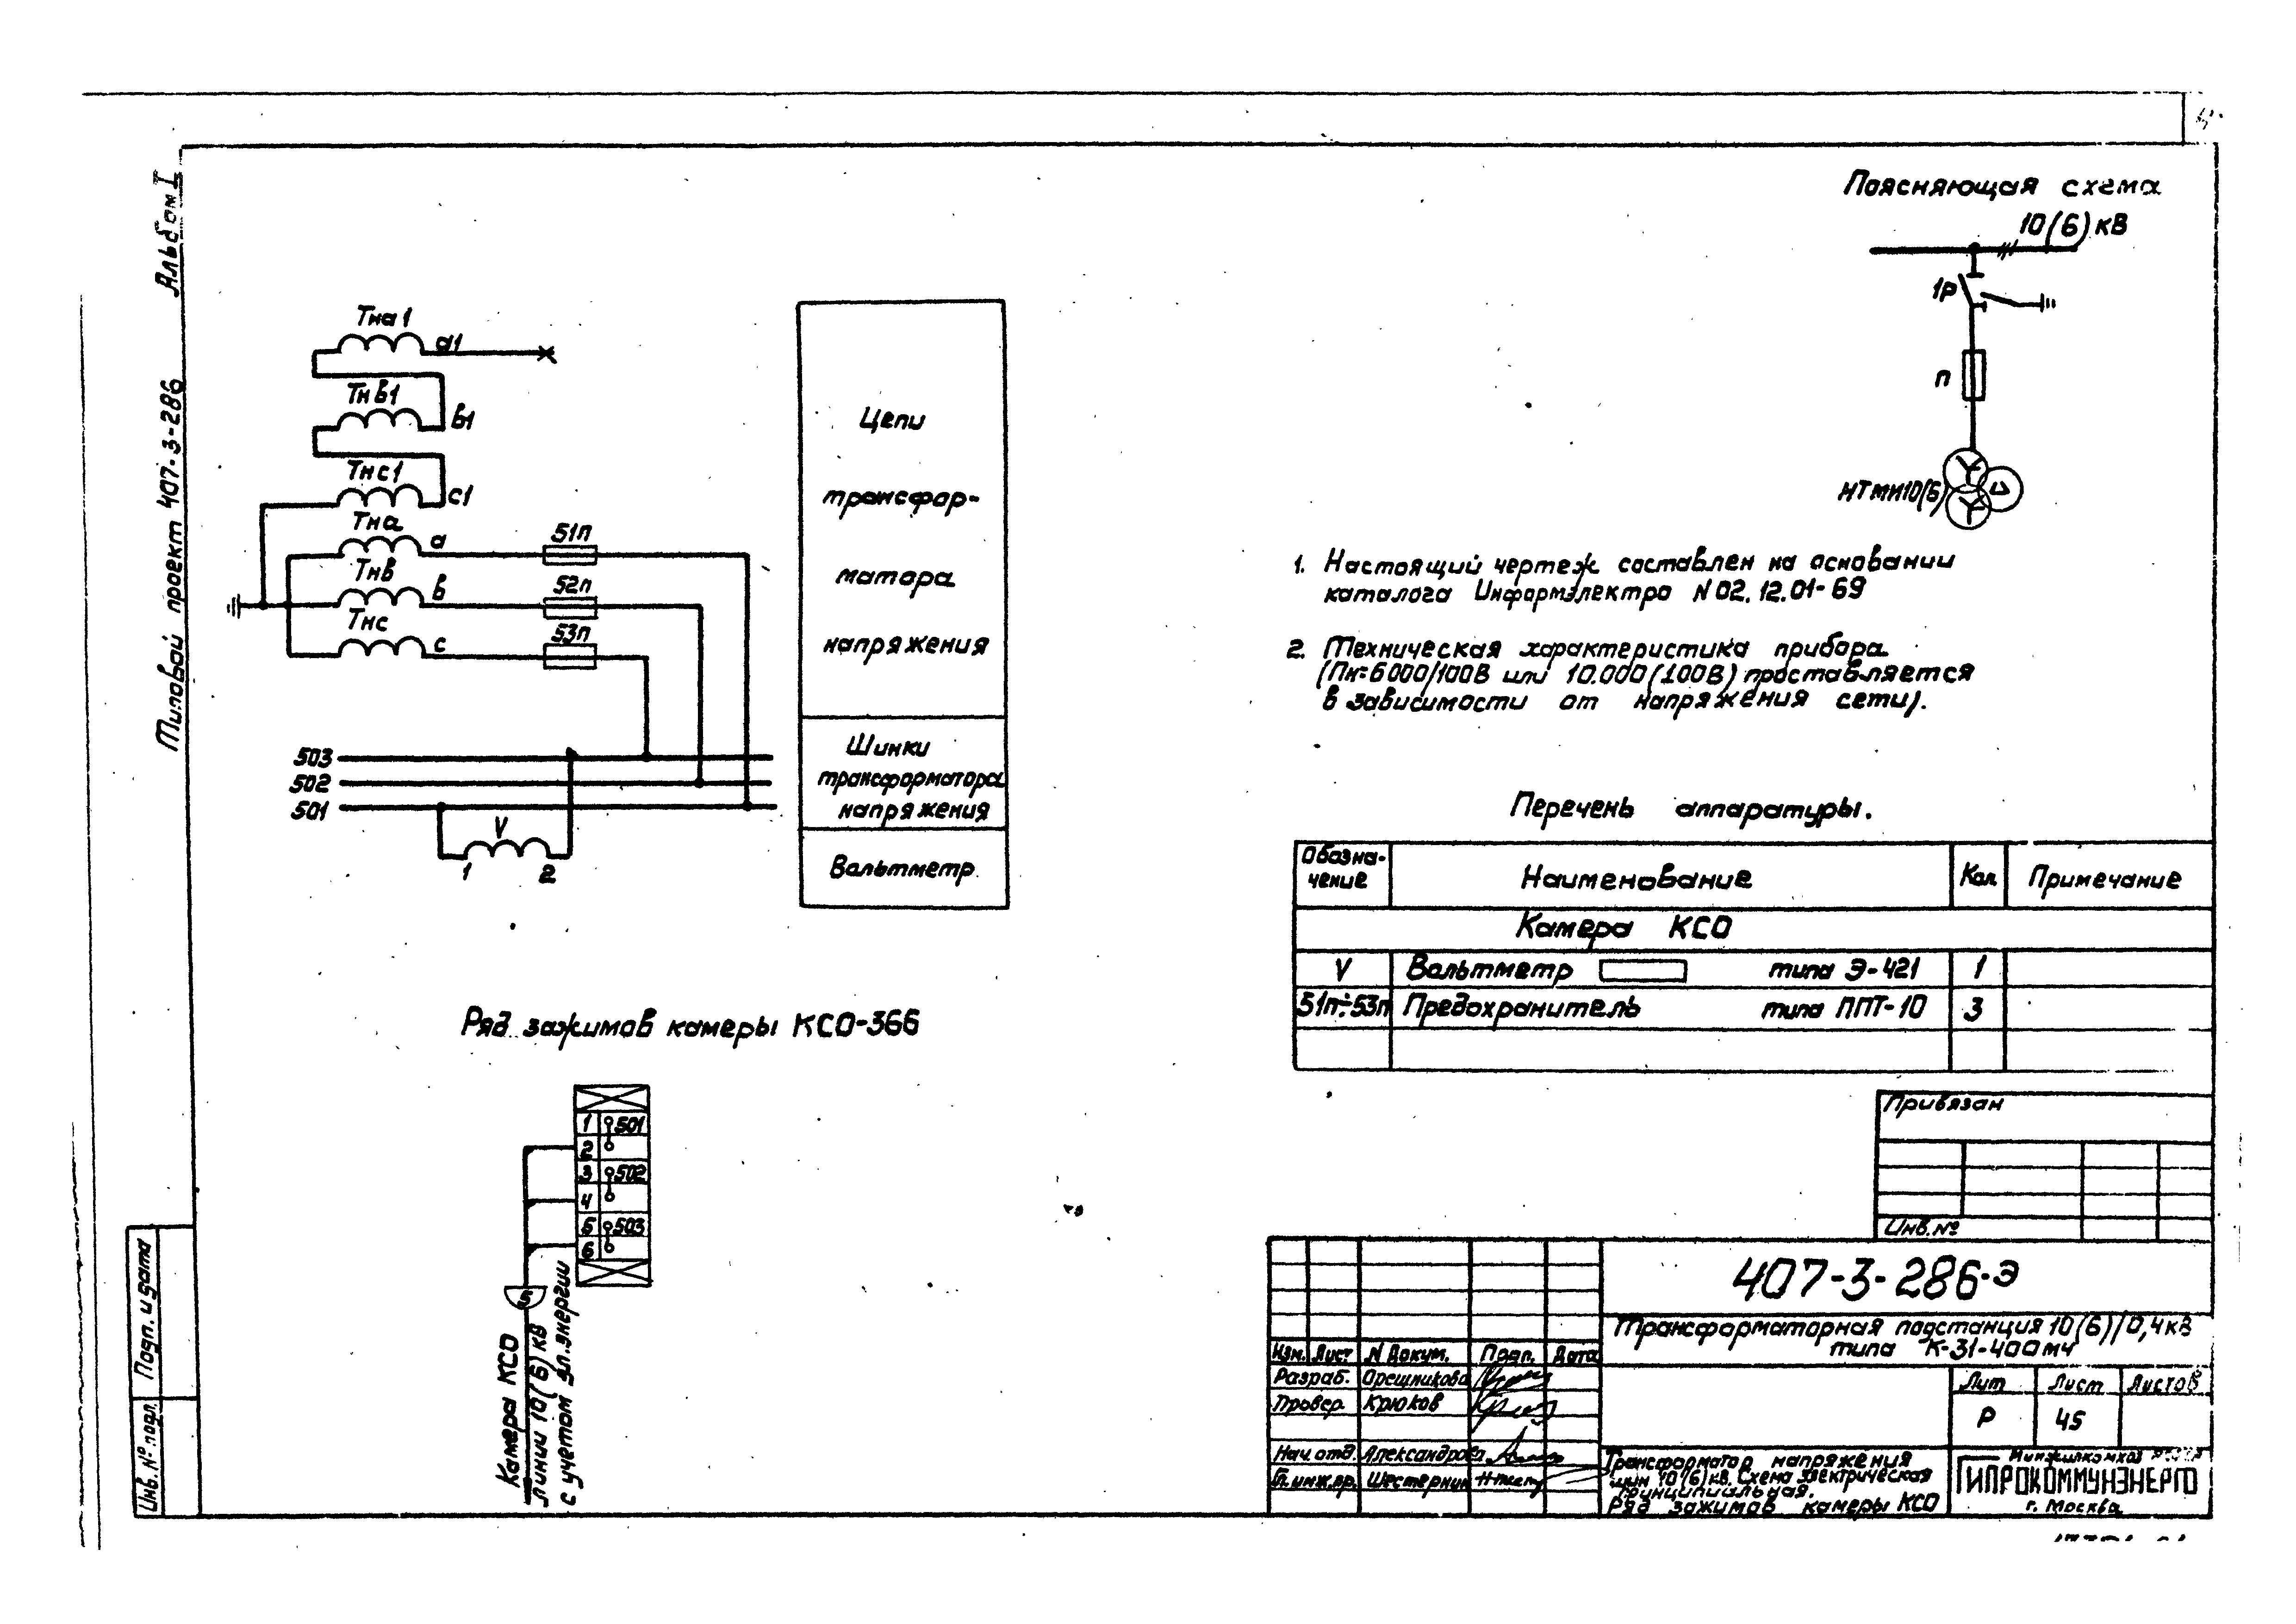 Типовой проект 407-3-286 Альбом I
Поясняющая схема
10(6)кВ
1Р
П
НТМИ10(6)
Тна1
а1
Тнв1
в1
Тнс1
с1
Тна
а
51П
Тнв
в
52П
Тнс
с
53П
503
502
501
V
1
2
Цепи
трансфор-
матора
напряжения
Шинки
трансформатора
напряжения
Вольтметр
1. Настоящий чертеж составлен на основании
каталога Информэлектро N 02.12.01-69
2. Техническая характеристика прибора
(Пк=6000/100В или 10.000(100В) проставляется
в зависимости от напряжения сети).
Перечень аппаратуры.
Обозна-
чение
Наименование
Кол.
Примечание
Камера КСО
V Вольтметр типа Э-421 1
51п÷53п Предохранитель типа ППТ-10 3
Ряд зажимов камеры КСО-366
1 501
2
3 502
4
5 503
6
5
Камера КСО
линии 10(6) кВ
с учетом эл.энергии
Привязан
Инв.№
407-3-286-Э
Трансформаторная подстанция 10(6)/0,4кВ
типа К-31-400мч
Изм. Лист N Докум. Подп. Дата
Разраб. Орешникова
Провер. Крюков
Нач.отд. Александрова
Гл.инж.пр. Шестернин
Лит Лист Листов
Р 45
Трансформатор напряжения
шин 10(6)кВ. Схема электрическая
принципиальная.
Ряд зажимов камеры КСО
Минжилкомхоз
ГИПРОКОММУНЭНЕРГО
г. Москва
Подп. и дата
Инв.№ подл.